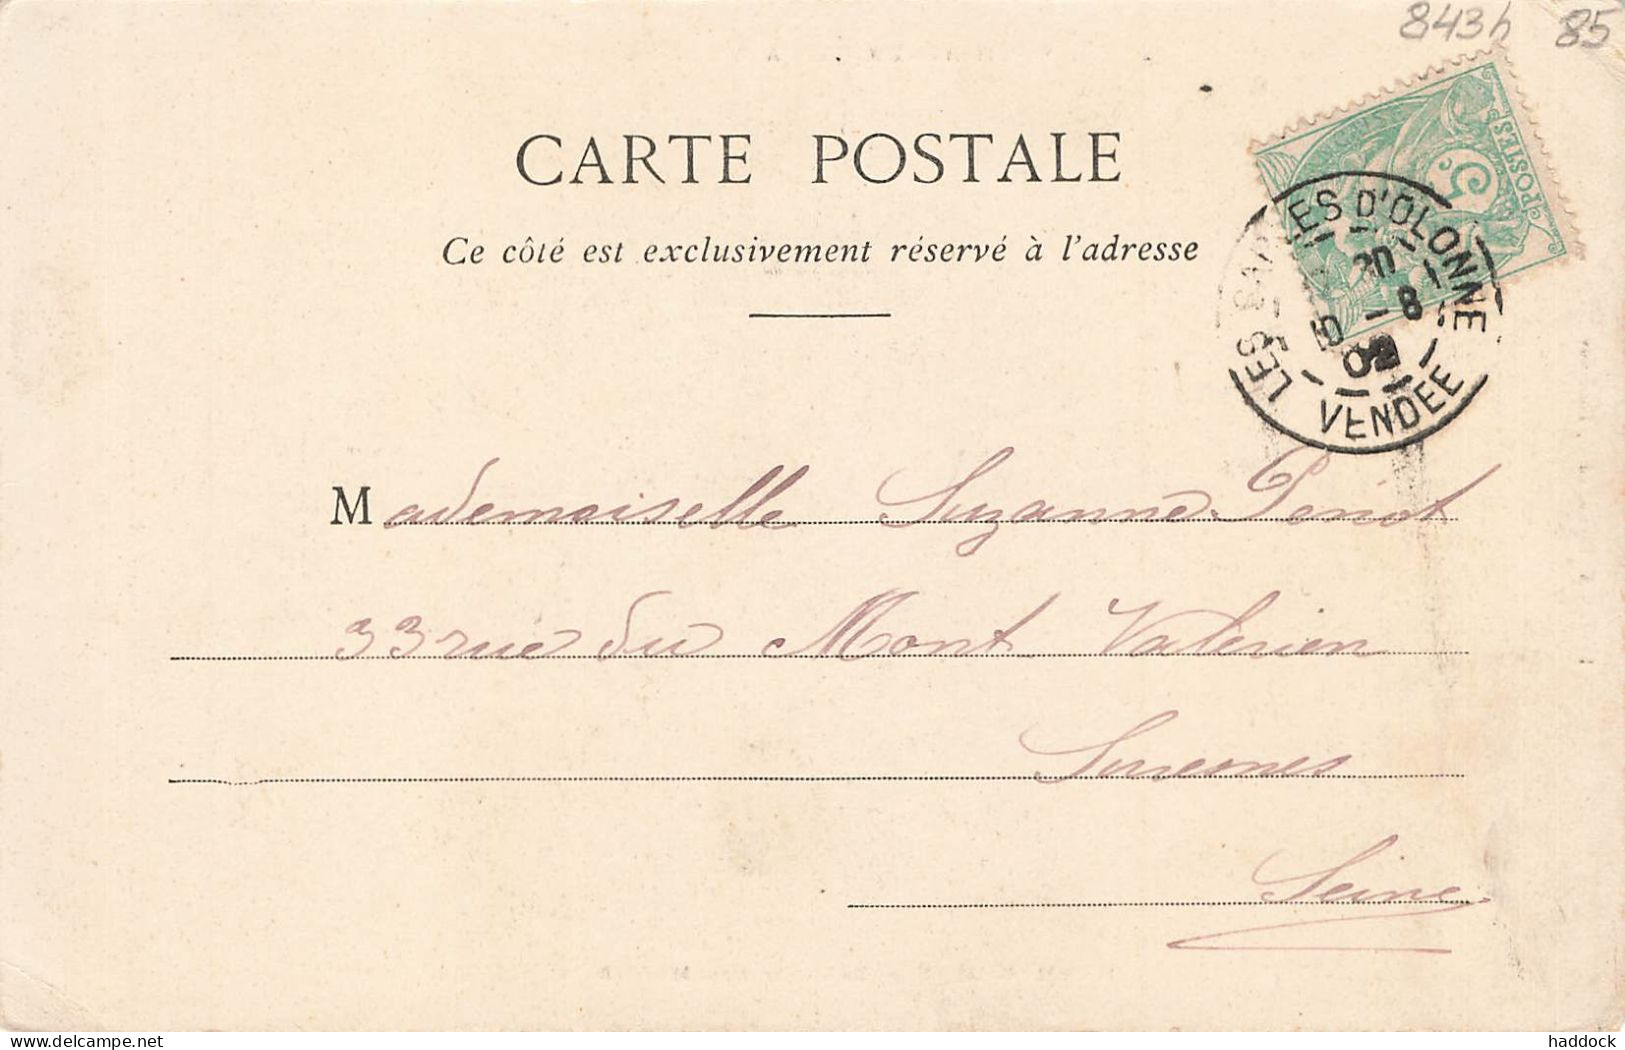 843h 85
CARTE POSTALE
Ce côté est exclusivement réservé à l'adresse
5
POSTES
LES SABLES D'OLONNE
20
8
VENDEE
Mademoiselle Suzanne Periot
33 rue du Mont Valerien
Suresnes
Seine.
delcampe.net
haddock